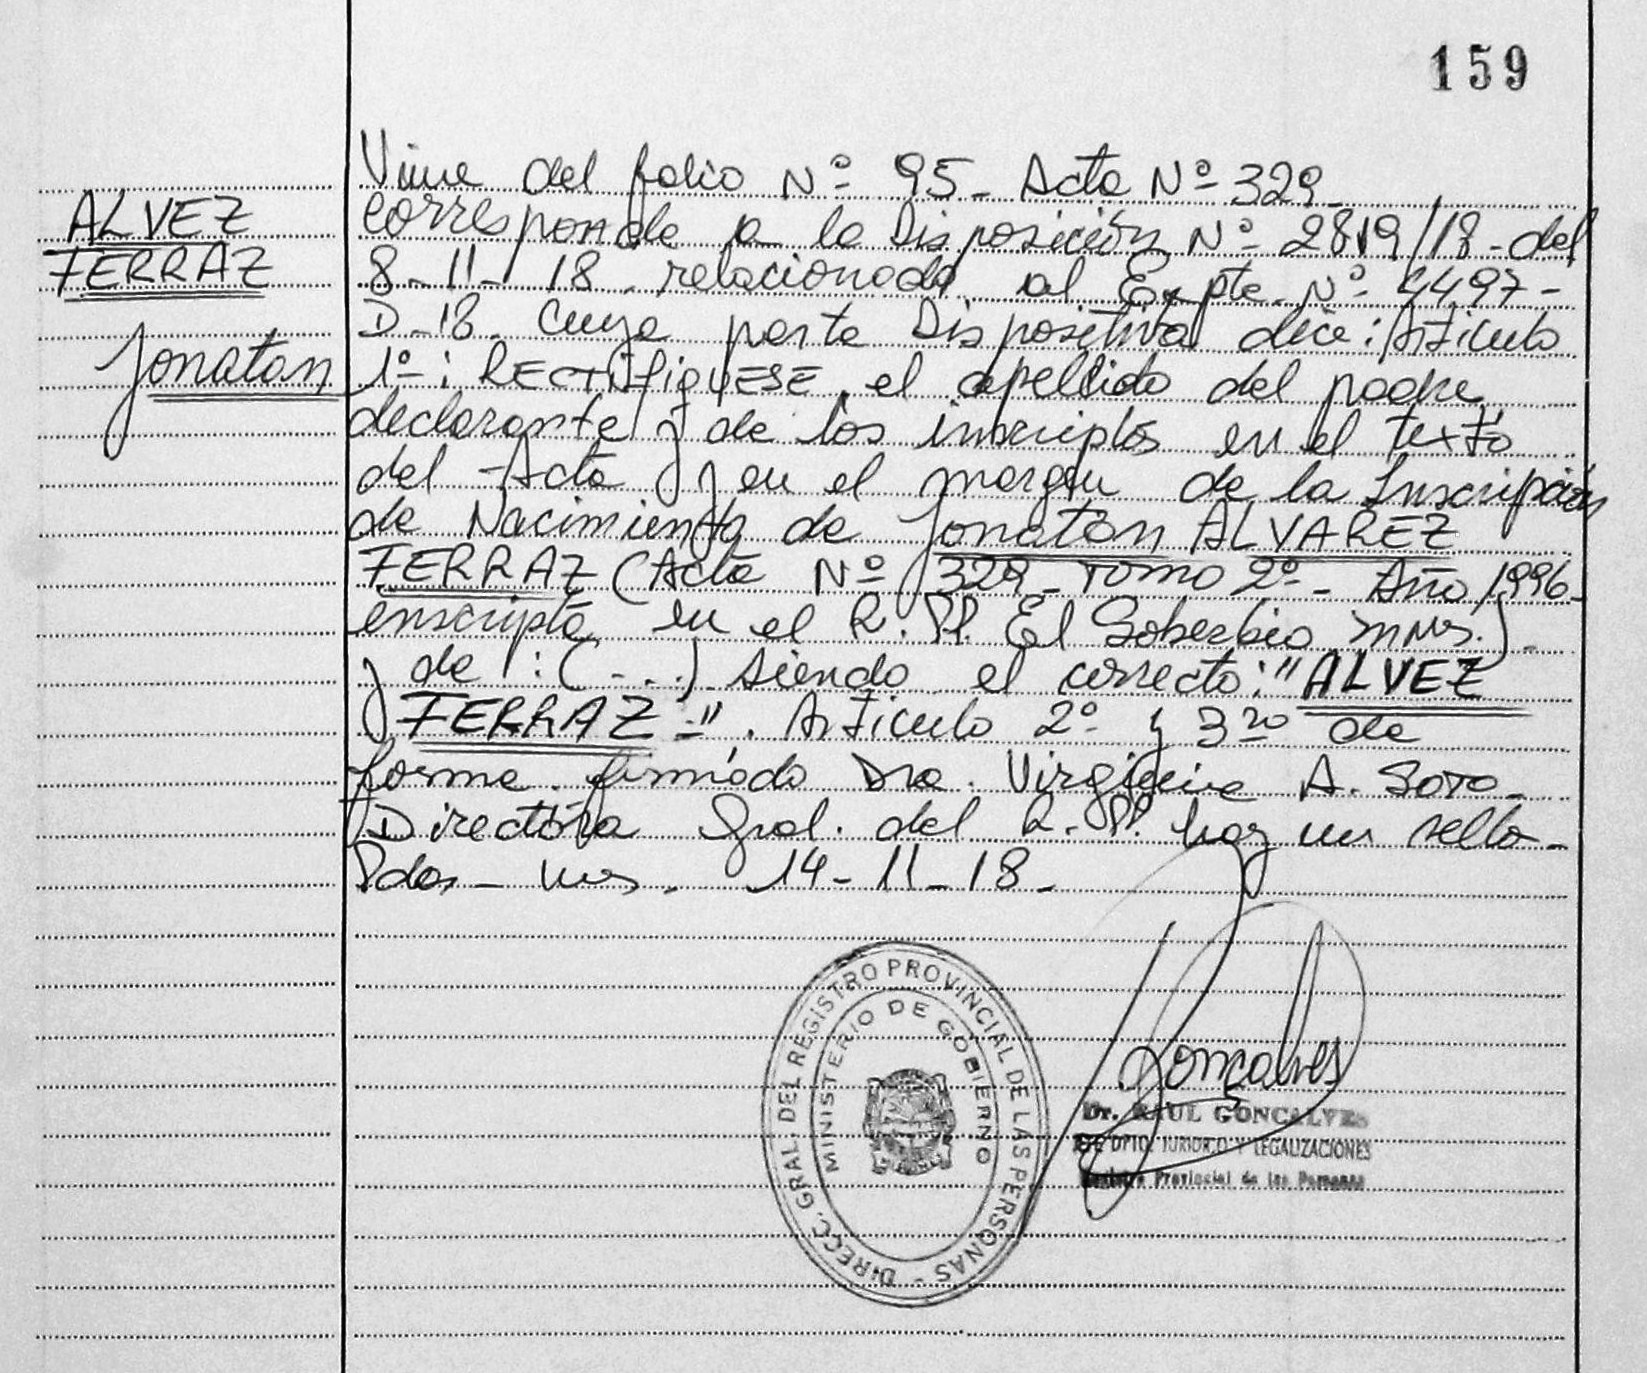 159
ALVEZ
FERRAZ
Jonatan
Viene del folio Nº 95- Acta Nº 329-
corresponde a la Disposición Nº 2819/18- del
8-11-18. relacionado al Expte. Nº 4497-
D-18. Cuya parte Dispositiva dice: Artículo
1º: RECTIFIQUESE el apellido del padre
declarante y de los inscriptos en el texto
del Acta y en el margen de la Inscripción
de Nacimiento de Jonatan ALVAREZ
FERRAZ (Acta Nº 329- Tomo 2º- Año 1996-
inscripta en el R.PP. El Soberbio Mnes.)-
y de: (...) siendo el correcto: "ALVEZ
FERRAZ-". Artículo 2º y 3ro de
forma. firmado Dra. Virginia A. Soto-
Directora Gral. del R.PP. hay un sello-
Pdas- Mnes. 14-11-18-
DIRECC. GRAL. DEL REGISTRO PROVINCIAL DE LAS PERSONAS -
MINISTERIO DE GOBIERNO
Gonçalves
Dr. RAUL GONCALVES
JEFE DPTO. JURIDICO Y LEGALIZACIONES
Registro Provincial de las Personas